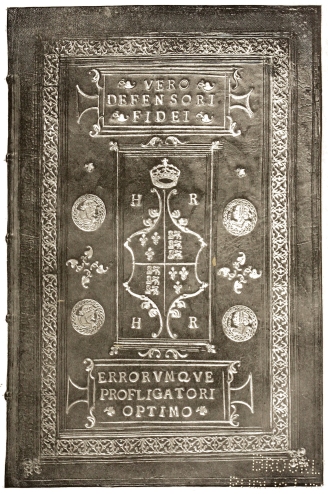 VERO
DEFENSORI
FIDEI
H R
H R
ERRORVMQVE
PROFLIGATORI
OPTIMO